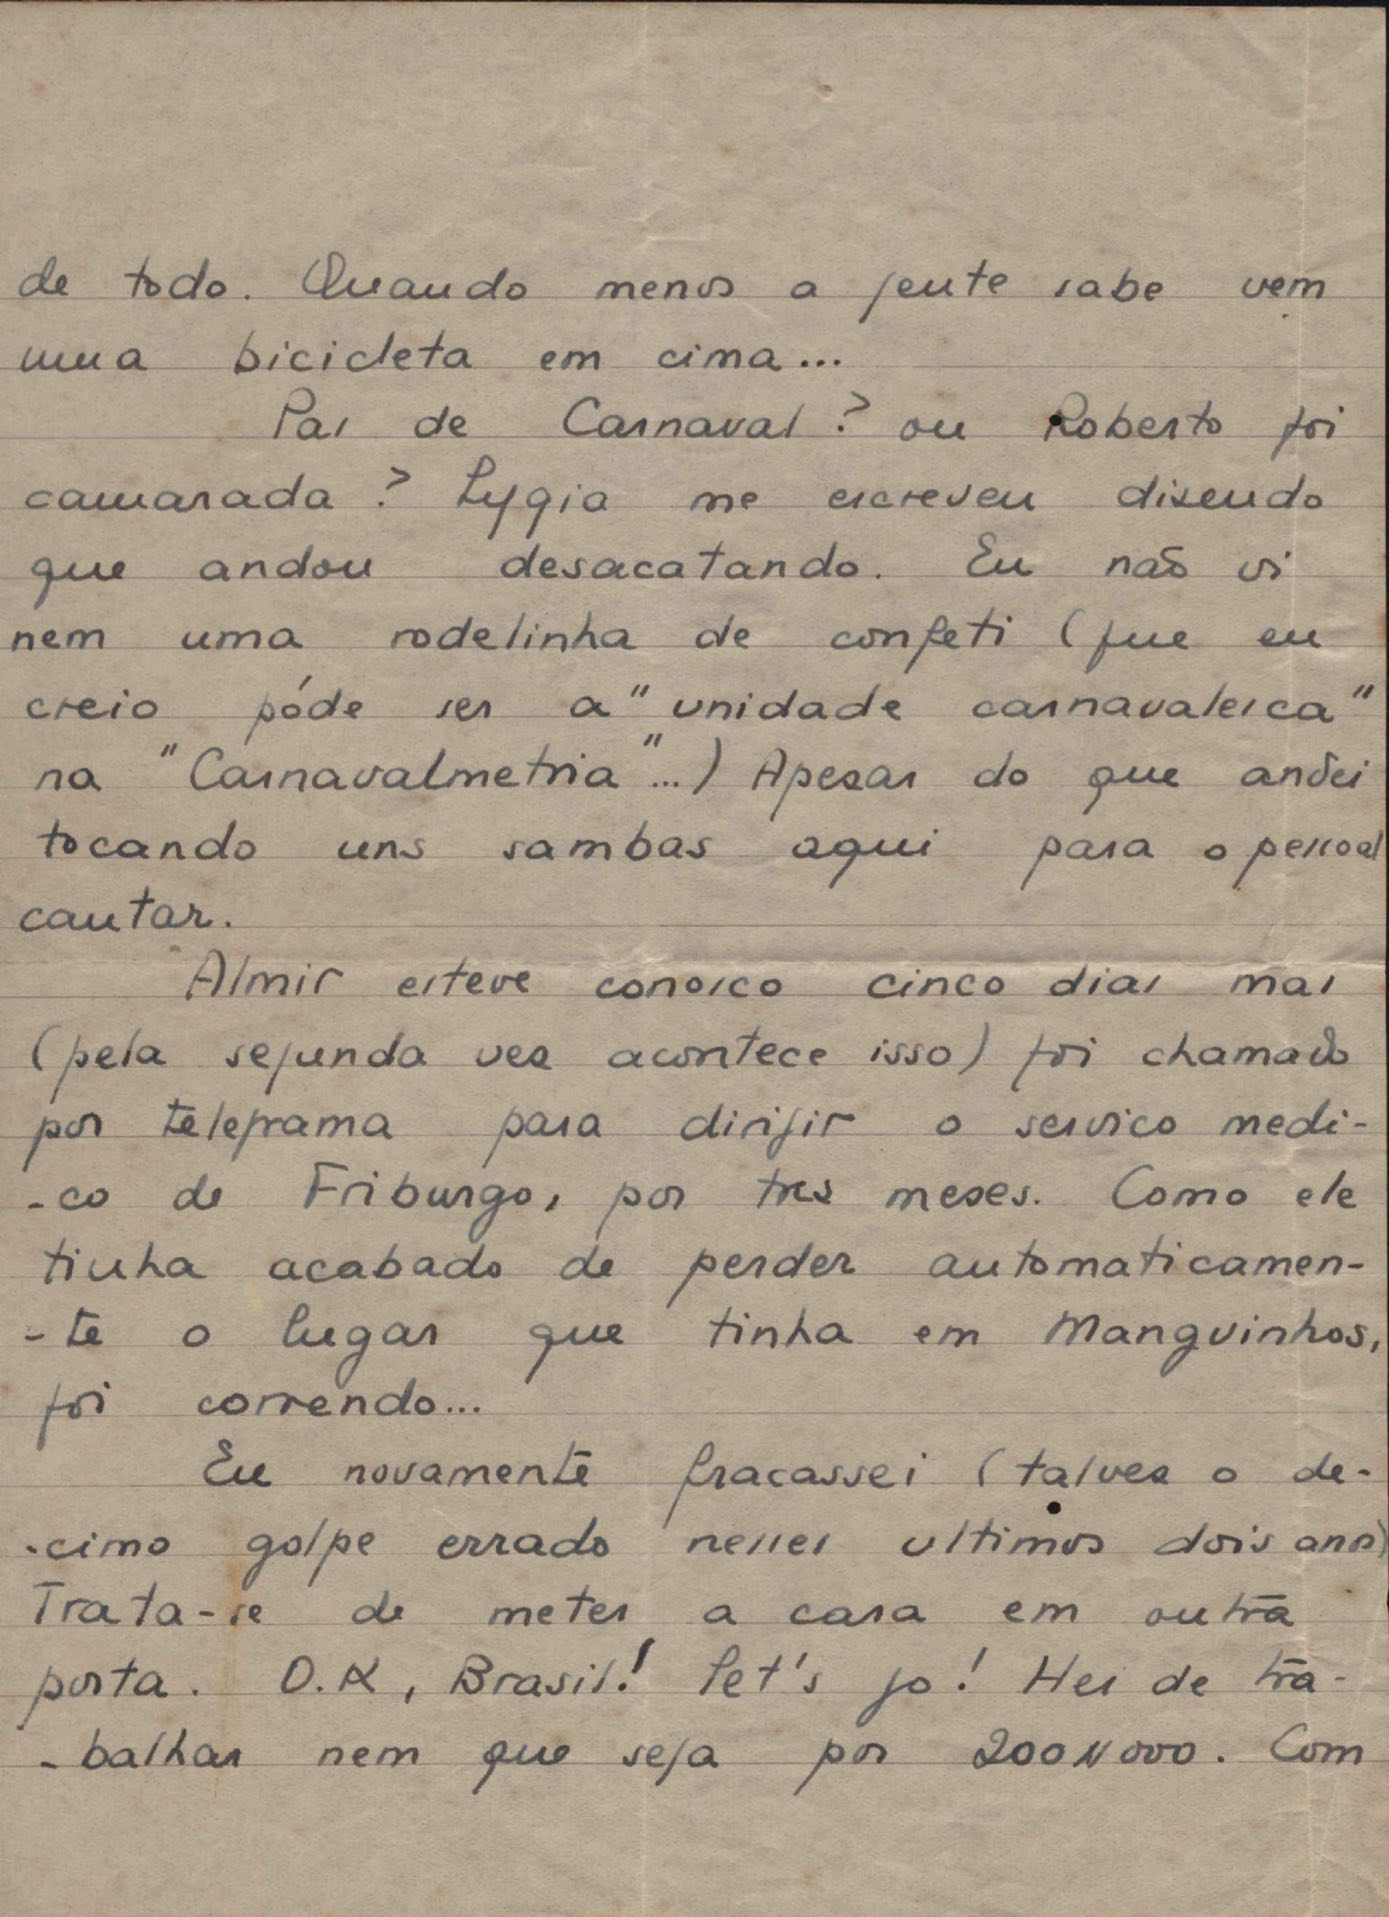 de todo. Quando menos a gente sabe vem
uma bicicleta em cima...
Pas de Carnaval? ou Roberto foi
camarada? Lygia me escreveu dizendo
que andou desacatando. Eu não vi
nem uma rodelinha de confeti (que eu
creio póde ser a "unidade carnavalesca"
na "Carnavalmetria"...) Apezar do que andei
tocando uns sambas aqui para o pessoal
cantar.
Almir esteve conosco cinco dias mas
(pela segunda vez acontece isso) foi chamado
por telegrama para dirigir o servico medi-
-co de Friburgo, por tres mezes. Como ele
tinha acabado de perder automaticamen-
-te o lugar que tinha em Manguinhos,
foi correndo...
Eu novamente fracassei (talvez o de-
-cimo golpe errado nesses ultimos dois anos)
Trata-se de meter a cara em outra
porta. O.K, Brasil! Let's go! Hei de tra-
-balhar nem que seja por 200$000. Com